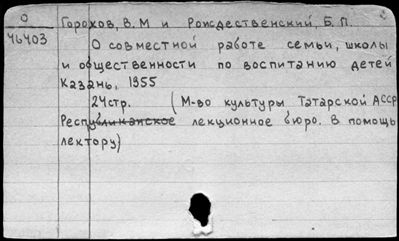 О Горохов, В. М и Рождественский, Б. П.
46403
О совместной работе семьи, школы
и общественности по воспитанию детей
Казань, 1955
24стр. (М-во культуры Татарской АССР
Республиканское лекционное бюро. В помощь
лектору)